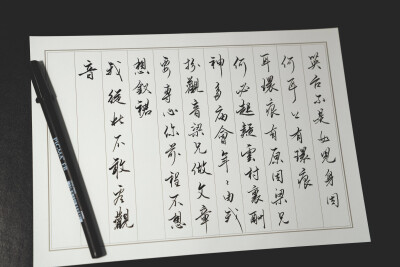 英台不是女児身因
何耳上有環痕
耳環痕有原因梁兄
何必起疑雲村裏酬
神多庙會年々由我
扮觀音梁兄做文章
要專心你前程不想
想釵裙
我從此不敢看觀
音